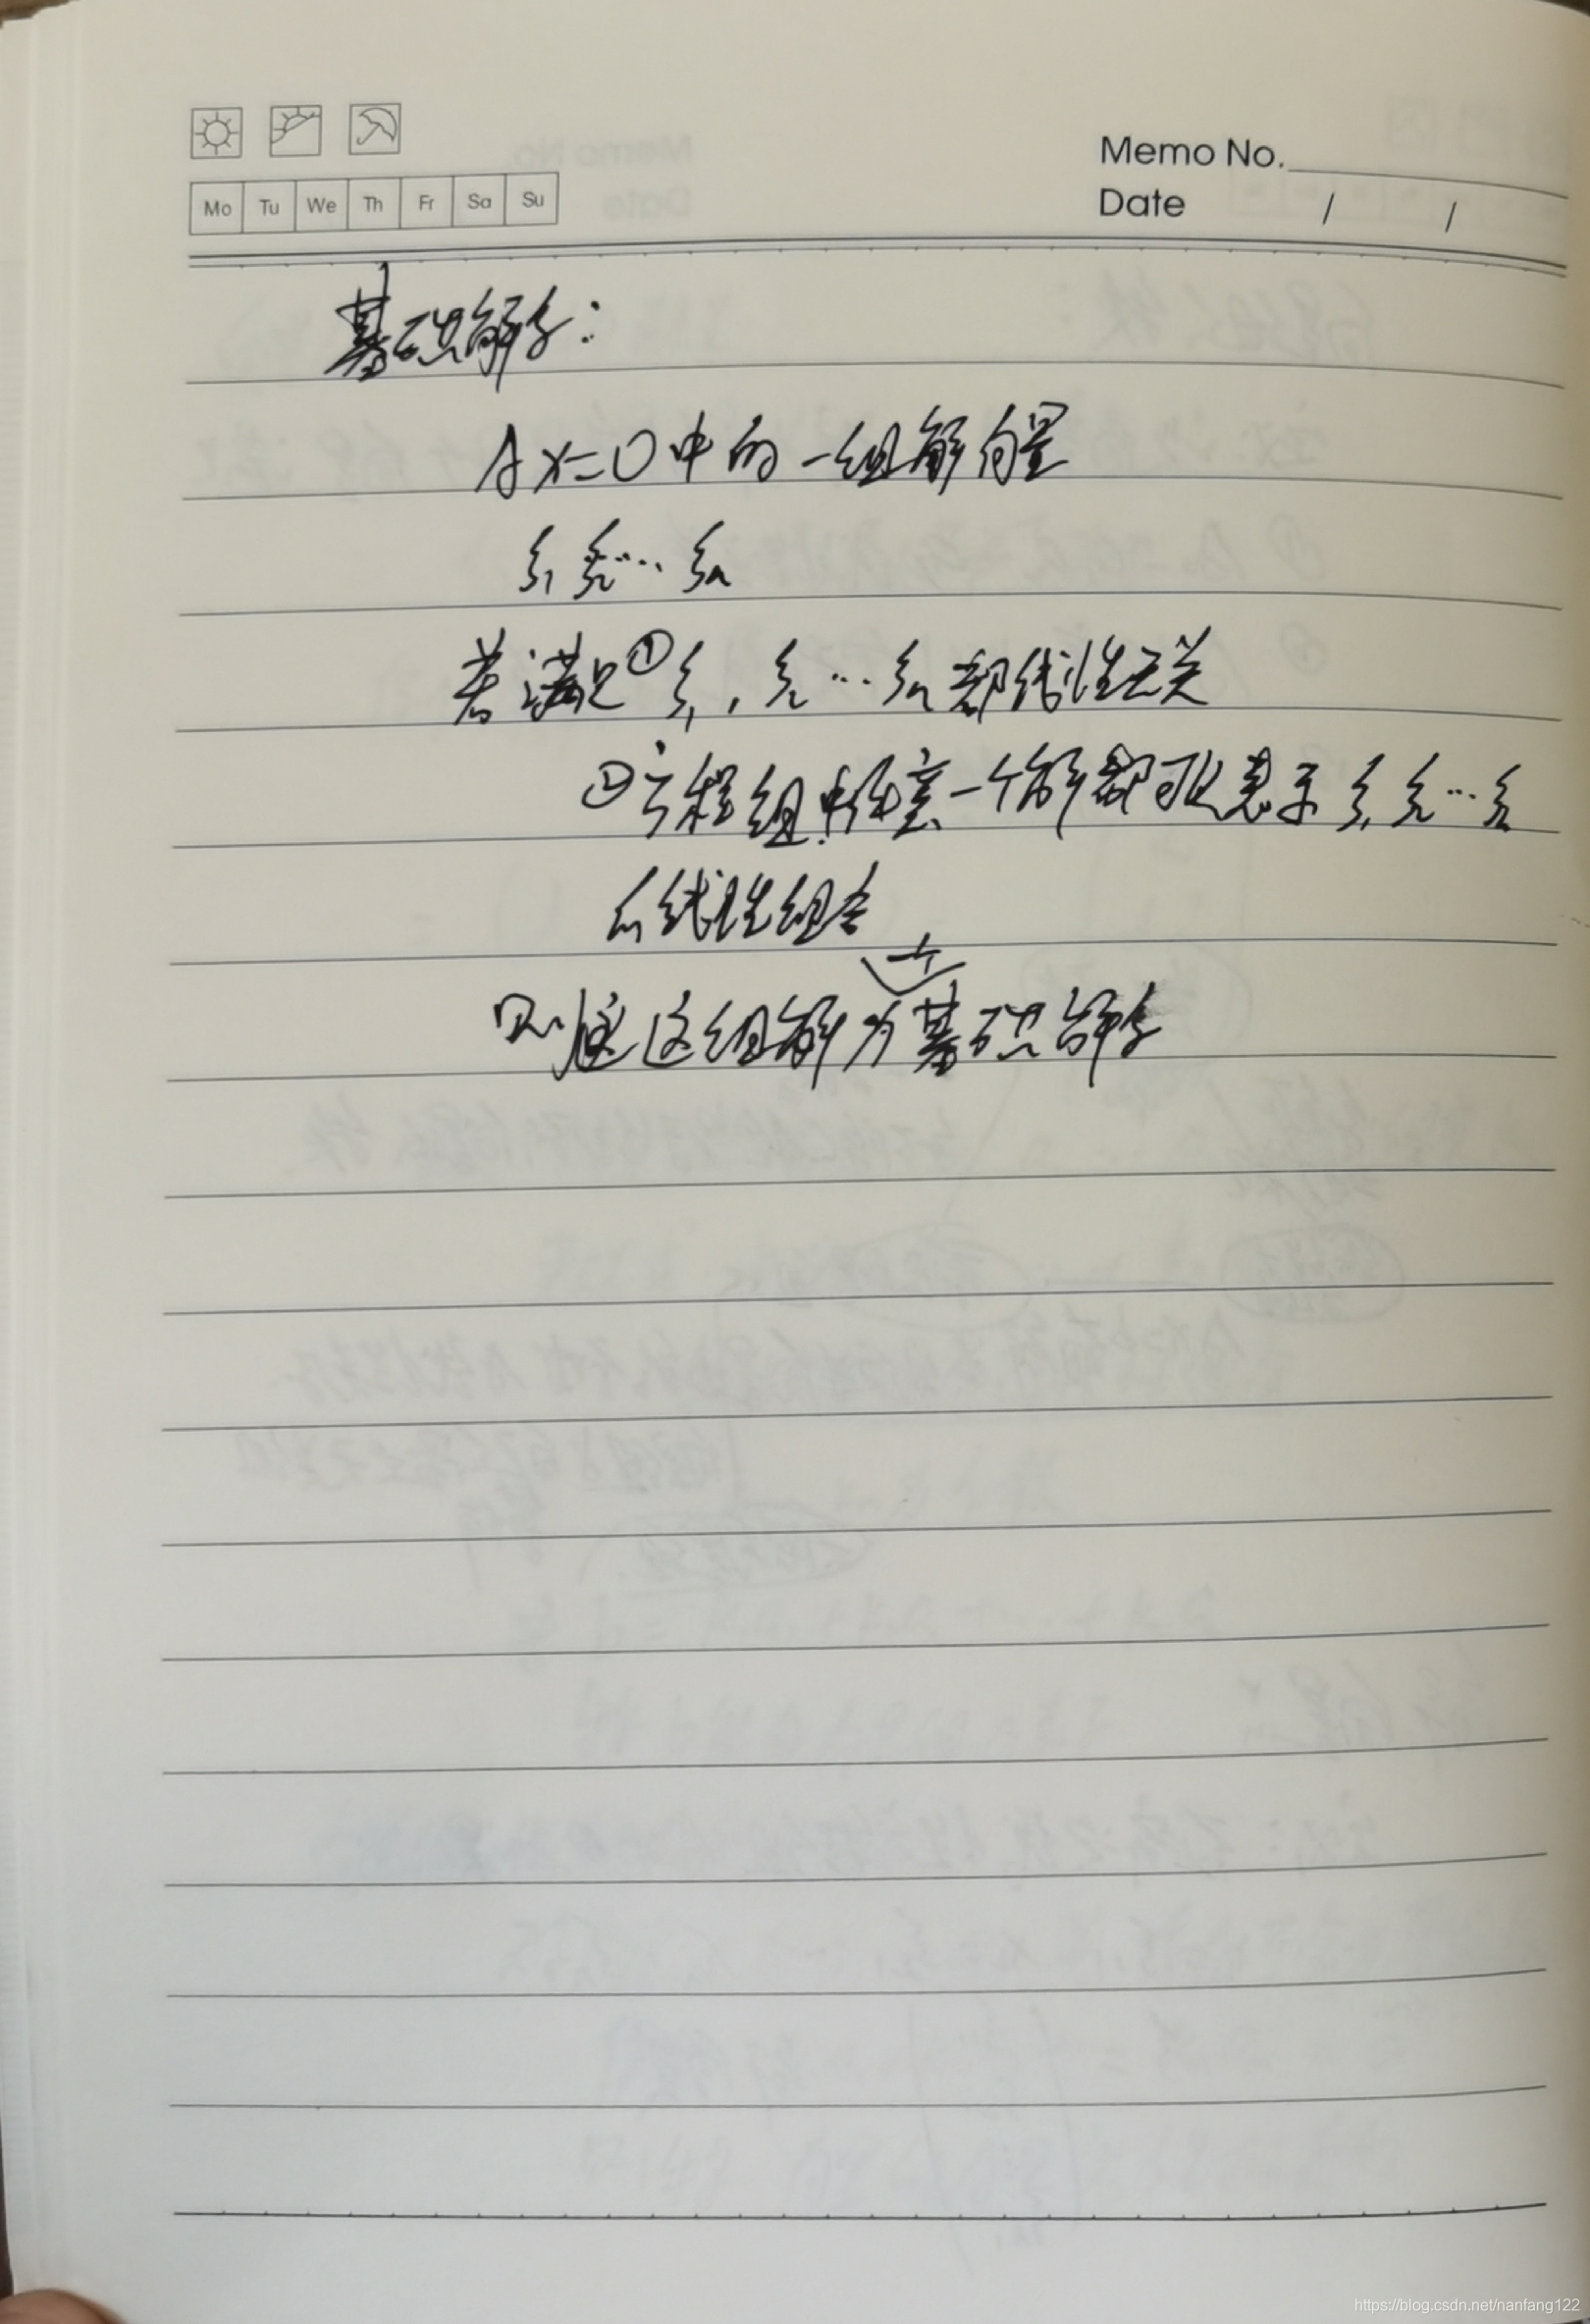 Memo No.
Mo Tu We Th Fr Sa Su
Date / /
基础解系:
Ax=0中的一组解向量
ξ₁ ξ₂… ξₙ
若满足①ξ₁, ξ₂ … ξₙ 都线性无关
②方程组中任意一个解都可以表示 ξ₁ ξ₂ … ξₙ
的线性组合
则 这组解为一个基础解系
https://blog.csdn.net/nanfang122